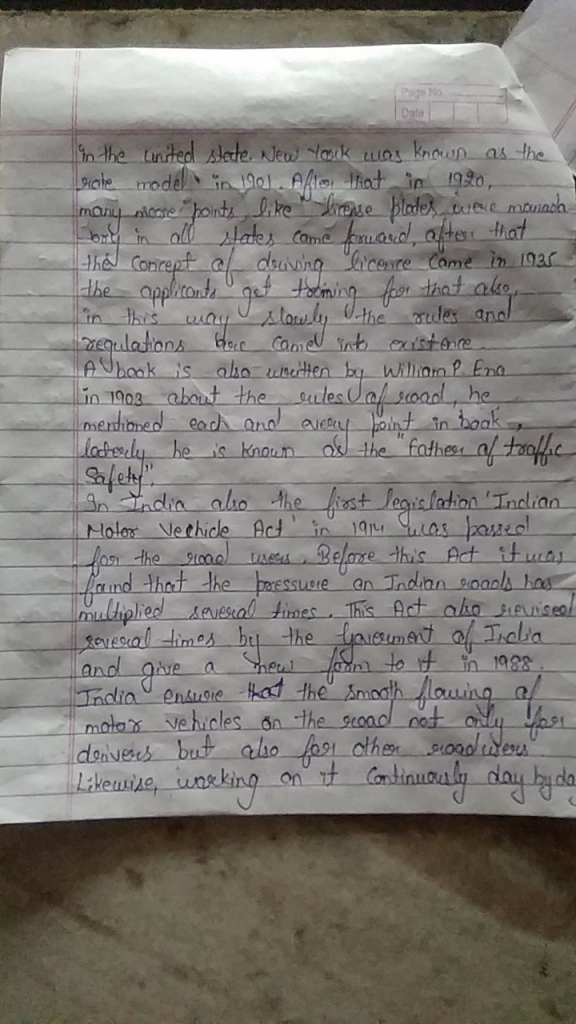 Page No.
Date
In the united state. New York was known as the
role model in 1901. After that in 1920,
many more points like license plates were manada
tory in all states came forward, after that
the concept of driving licence came in 1935
the applicants get training for that also,
in this way slowly the rules and
regulations are came into existence.
A book is also written by William P. Eno
in 1903 about the rules of road, he
mentioned each and every point in book,
laterly he is known as the "father of traffic
Safety".
In India also the first legislation 'Indian
Motor Vechicle Act' in 1914 was passed
for the road users. Before this Act it was
faind that the pressure on Indian roads has
multiplied several times. This Act also revised
several times by the Goverment of India
and give a new form to it in 1988.
India ensure that the smooth flowing of
motor vehicles on the road not only for
derivers but also for other roadusers
Likewise, working on it continuously day by da